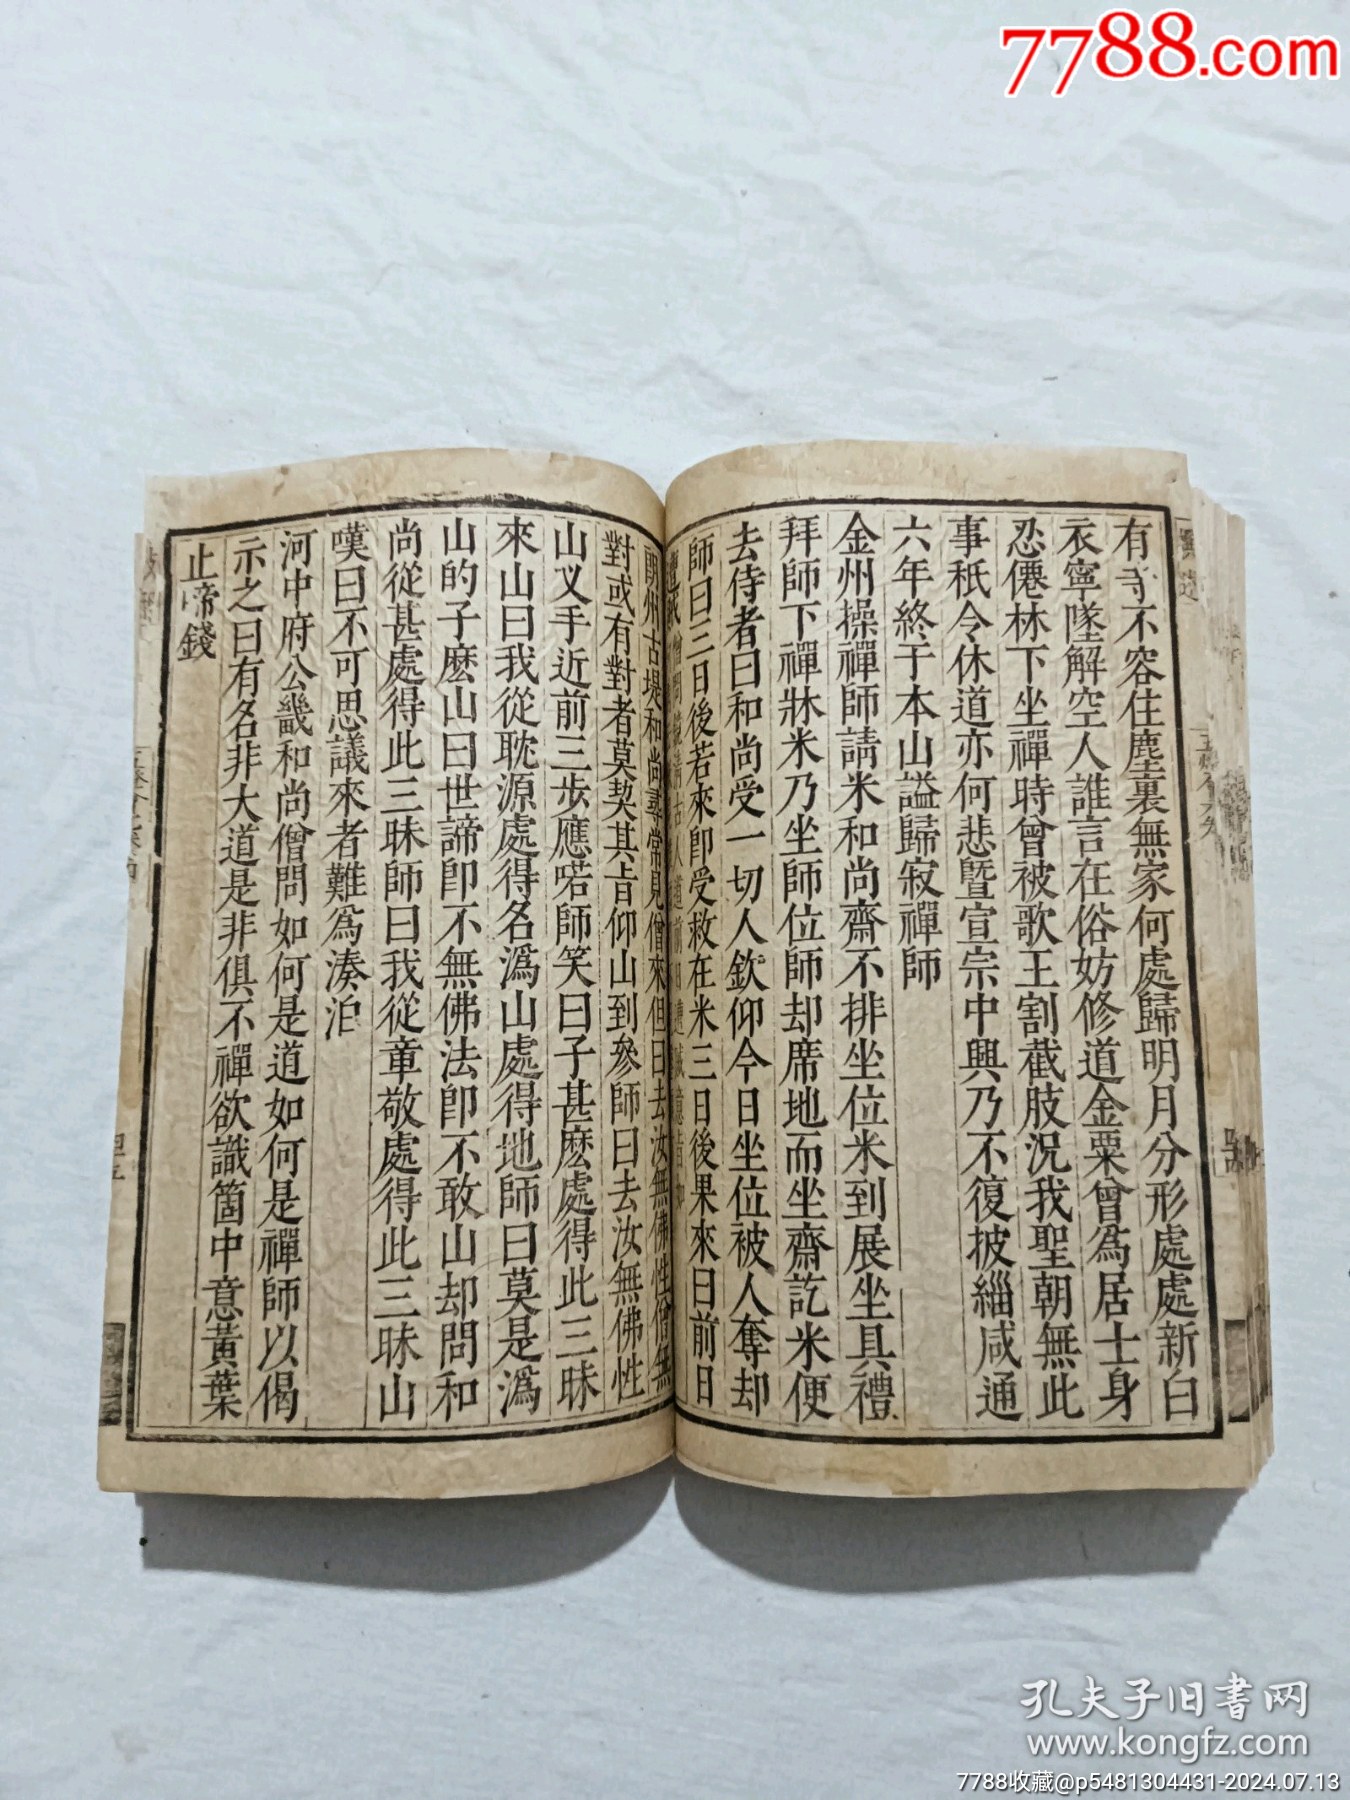 7788.com
有寺不容住塵裏無家何處歸明月分形處處新白
衣寧墜解空人誰言在俗妨修道金粟曾為居士身
忍僊林下坐禪時曾被歌王割截肢況我聖朝無此
事秖今休道亦何悲暨宣宗中興乃不復披緇咸通
六年終于本山謚歸寂禪師
金州操禪師請米和尚齋不排坐位米到展坐具禮
拜師下禪牀米乃坐師位師却席地而坐齋訖米便
去侍者曰和尚受一切人欽仰今日坐位被人奪却
師曰三日後若來即受救在米三日後果來曰前日
遭賊
朗州古堤和尚尋常見僧來但曰去汝無佛性僧無
對或有對者莫契其旨仰山到參師曰去汝無佛性
山叉手近前三步應喏師笑曰子甚麽處得此三昧
來山曰我從耽源處得名溈山處得地師曰莫是溈
山的子麽山曰世諦即不無佛法即不敢山却問和
尚從甚處得此三昧師曰我從章敬處得此三昧山
嘆曰不可思議來者難為湊泊
河中府公畿和尚僧問如何是道如何是禪師以偈
示之曰有名非大道是非俱不禪欲識箇中意黃葉
止啼錢
孔夫子旧書网
www.kongfz.com
7788收藏@p5481304431-2024.07.13